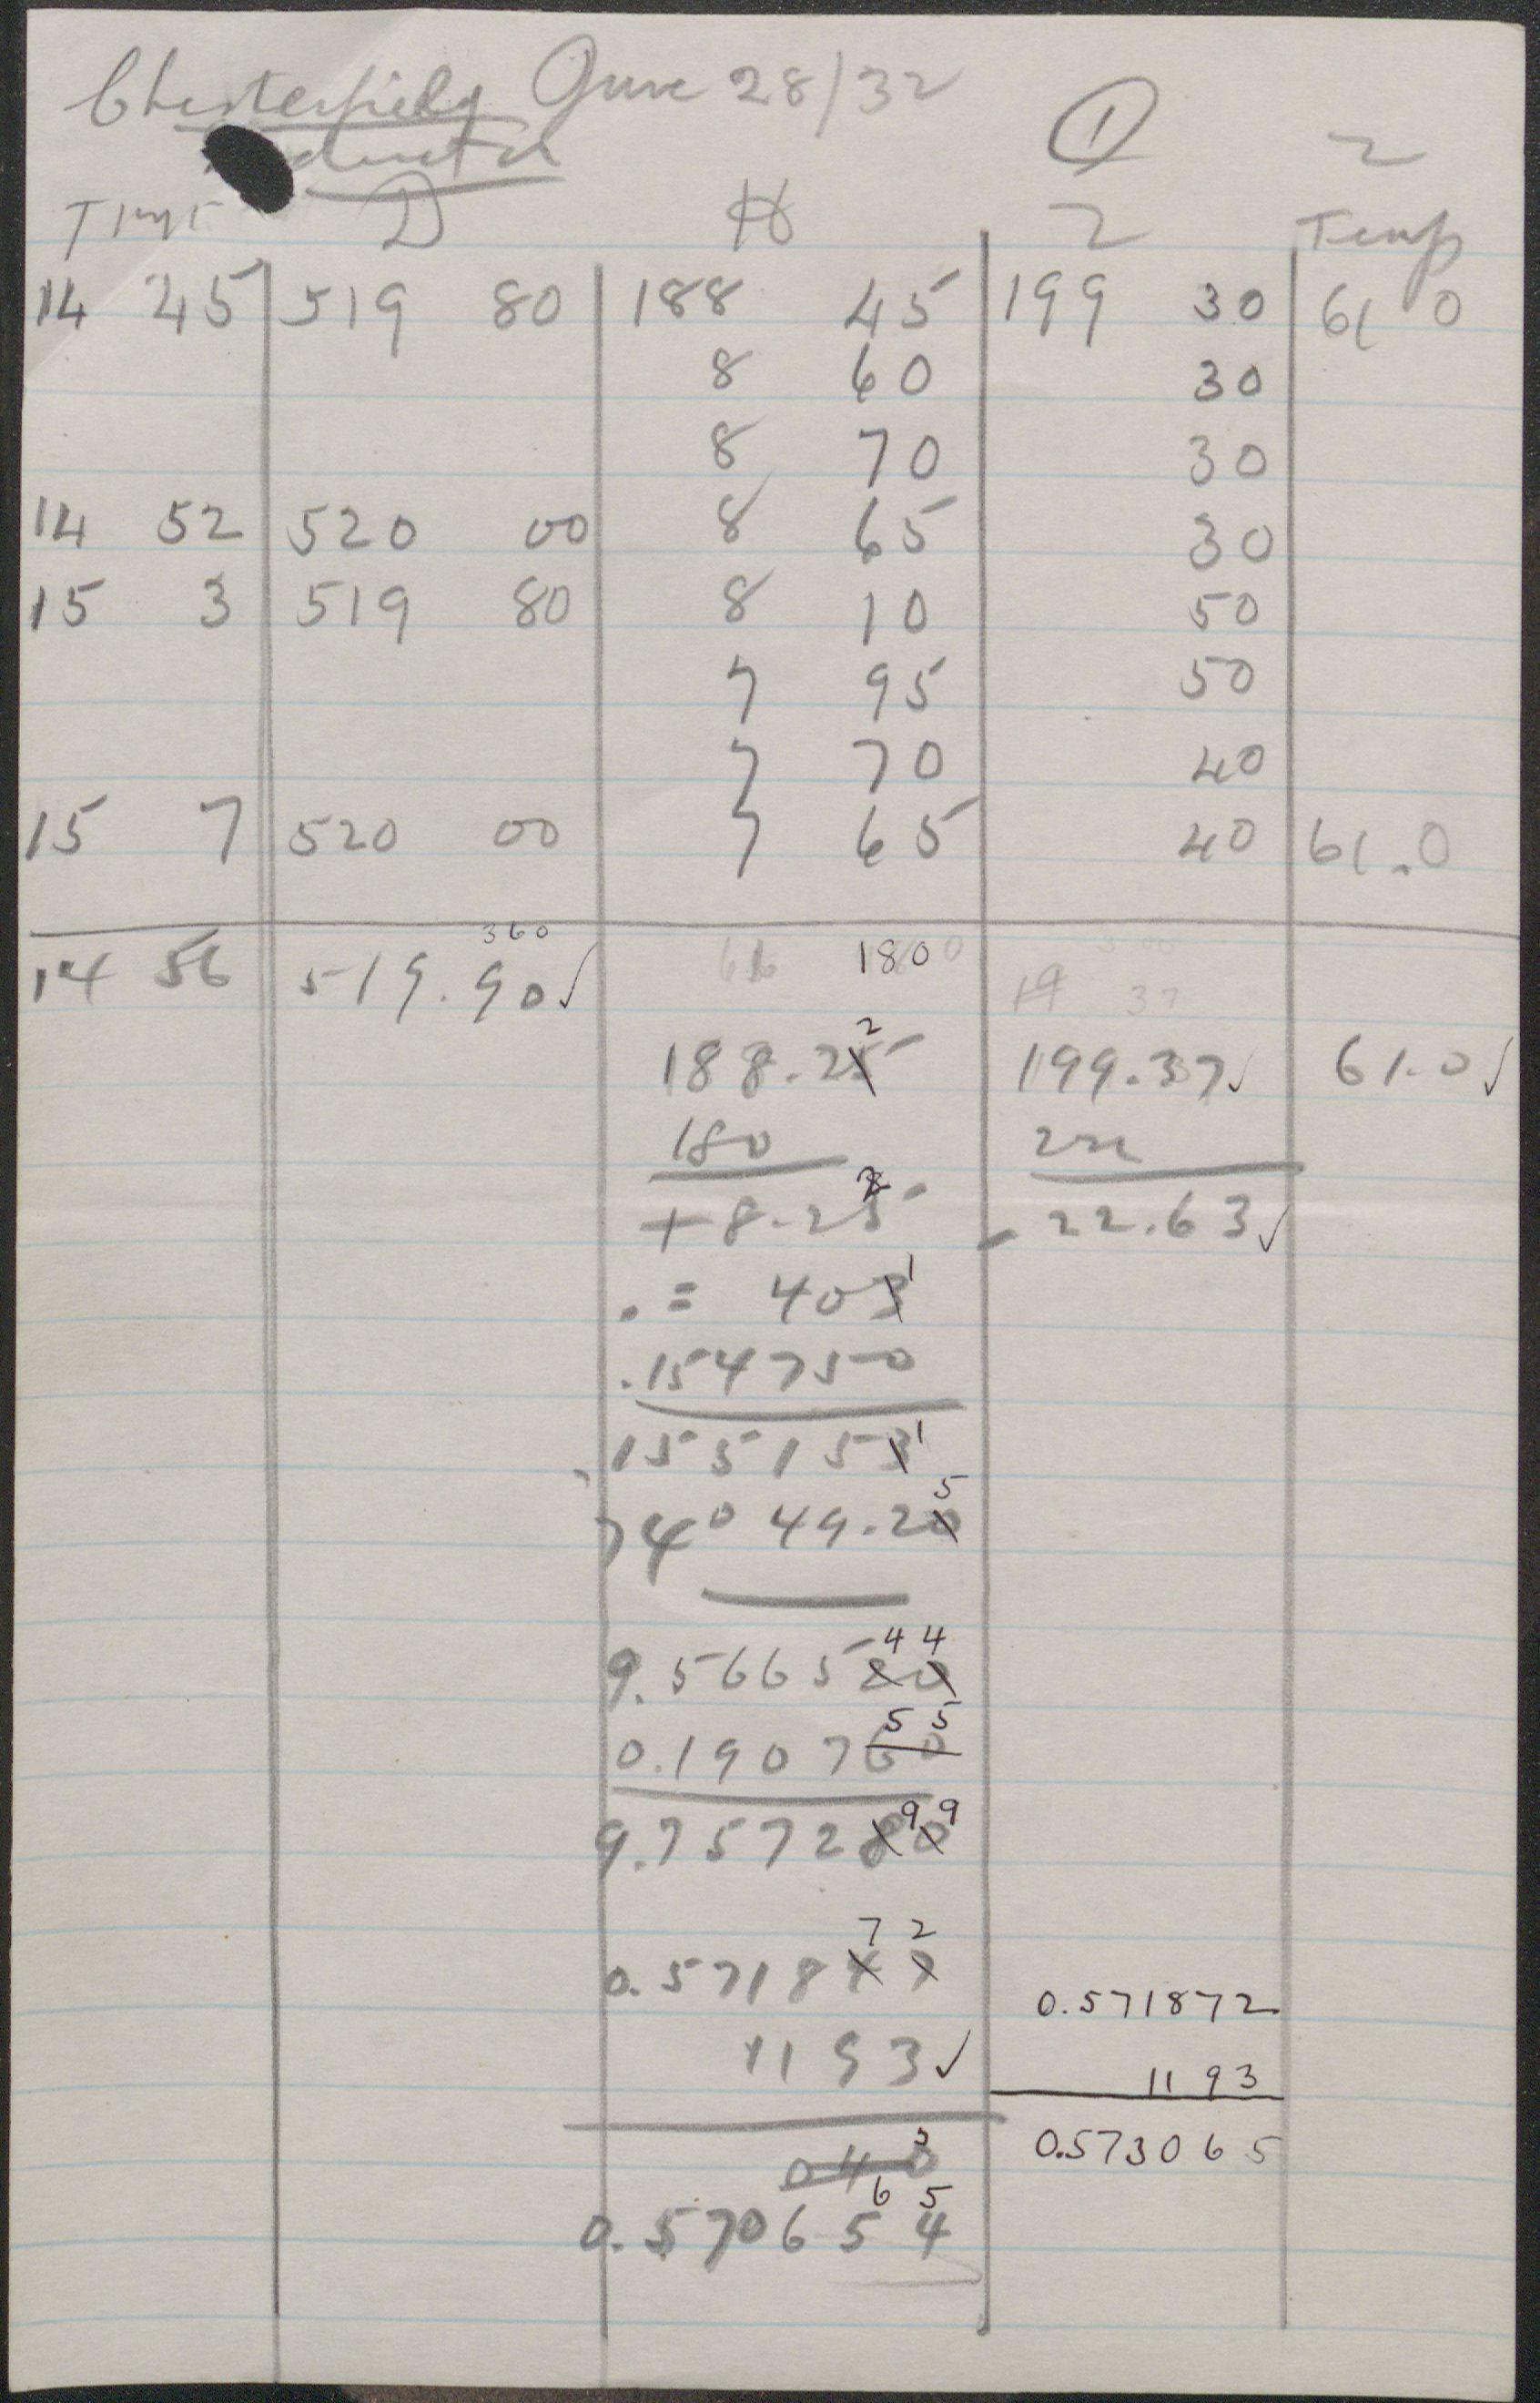 Chesterfield June 28/32
① 2
Time D H Z Temp
14 45 519 80 188 45 199 30 61 0
8 60 30
8 70 30
14 52 520 00 8 65 30
15 3 519 80 8 10 50
7 95 50
7 70 40
15 7 520 00 7 65 40 61.0
360
14 56 519.90✓ 180
19 37
2
188.25 199.37✓ 61.0✓
180 222
2
+8.25 -22.63✓
1
.= 403
.154750
1
.155153
5
74° 49.20
4 4
9.566520
5 5
0.190760
9 9
9.757280
7 2
0.5718 0.571872
1193✓ 1193
040 0.573065
6 5
0.570654